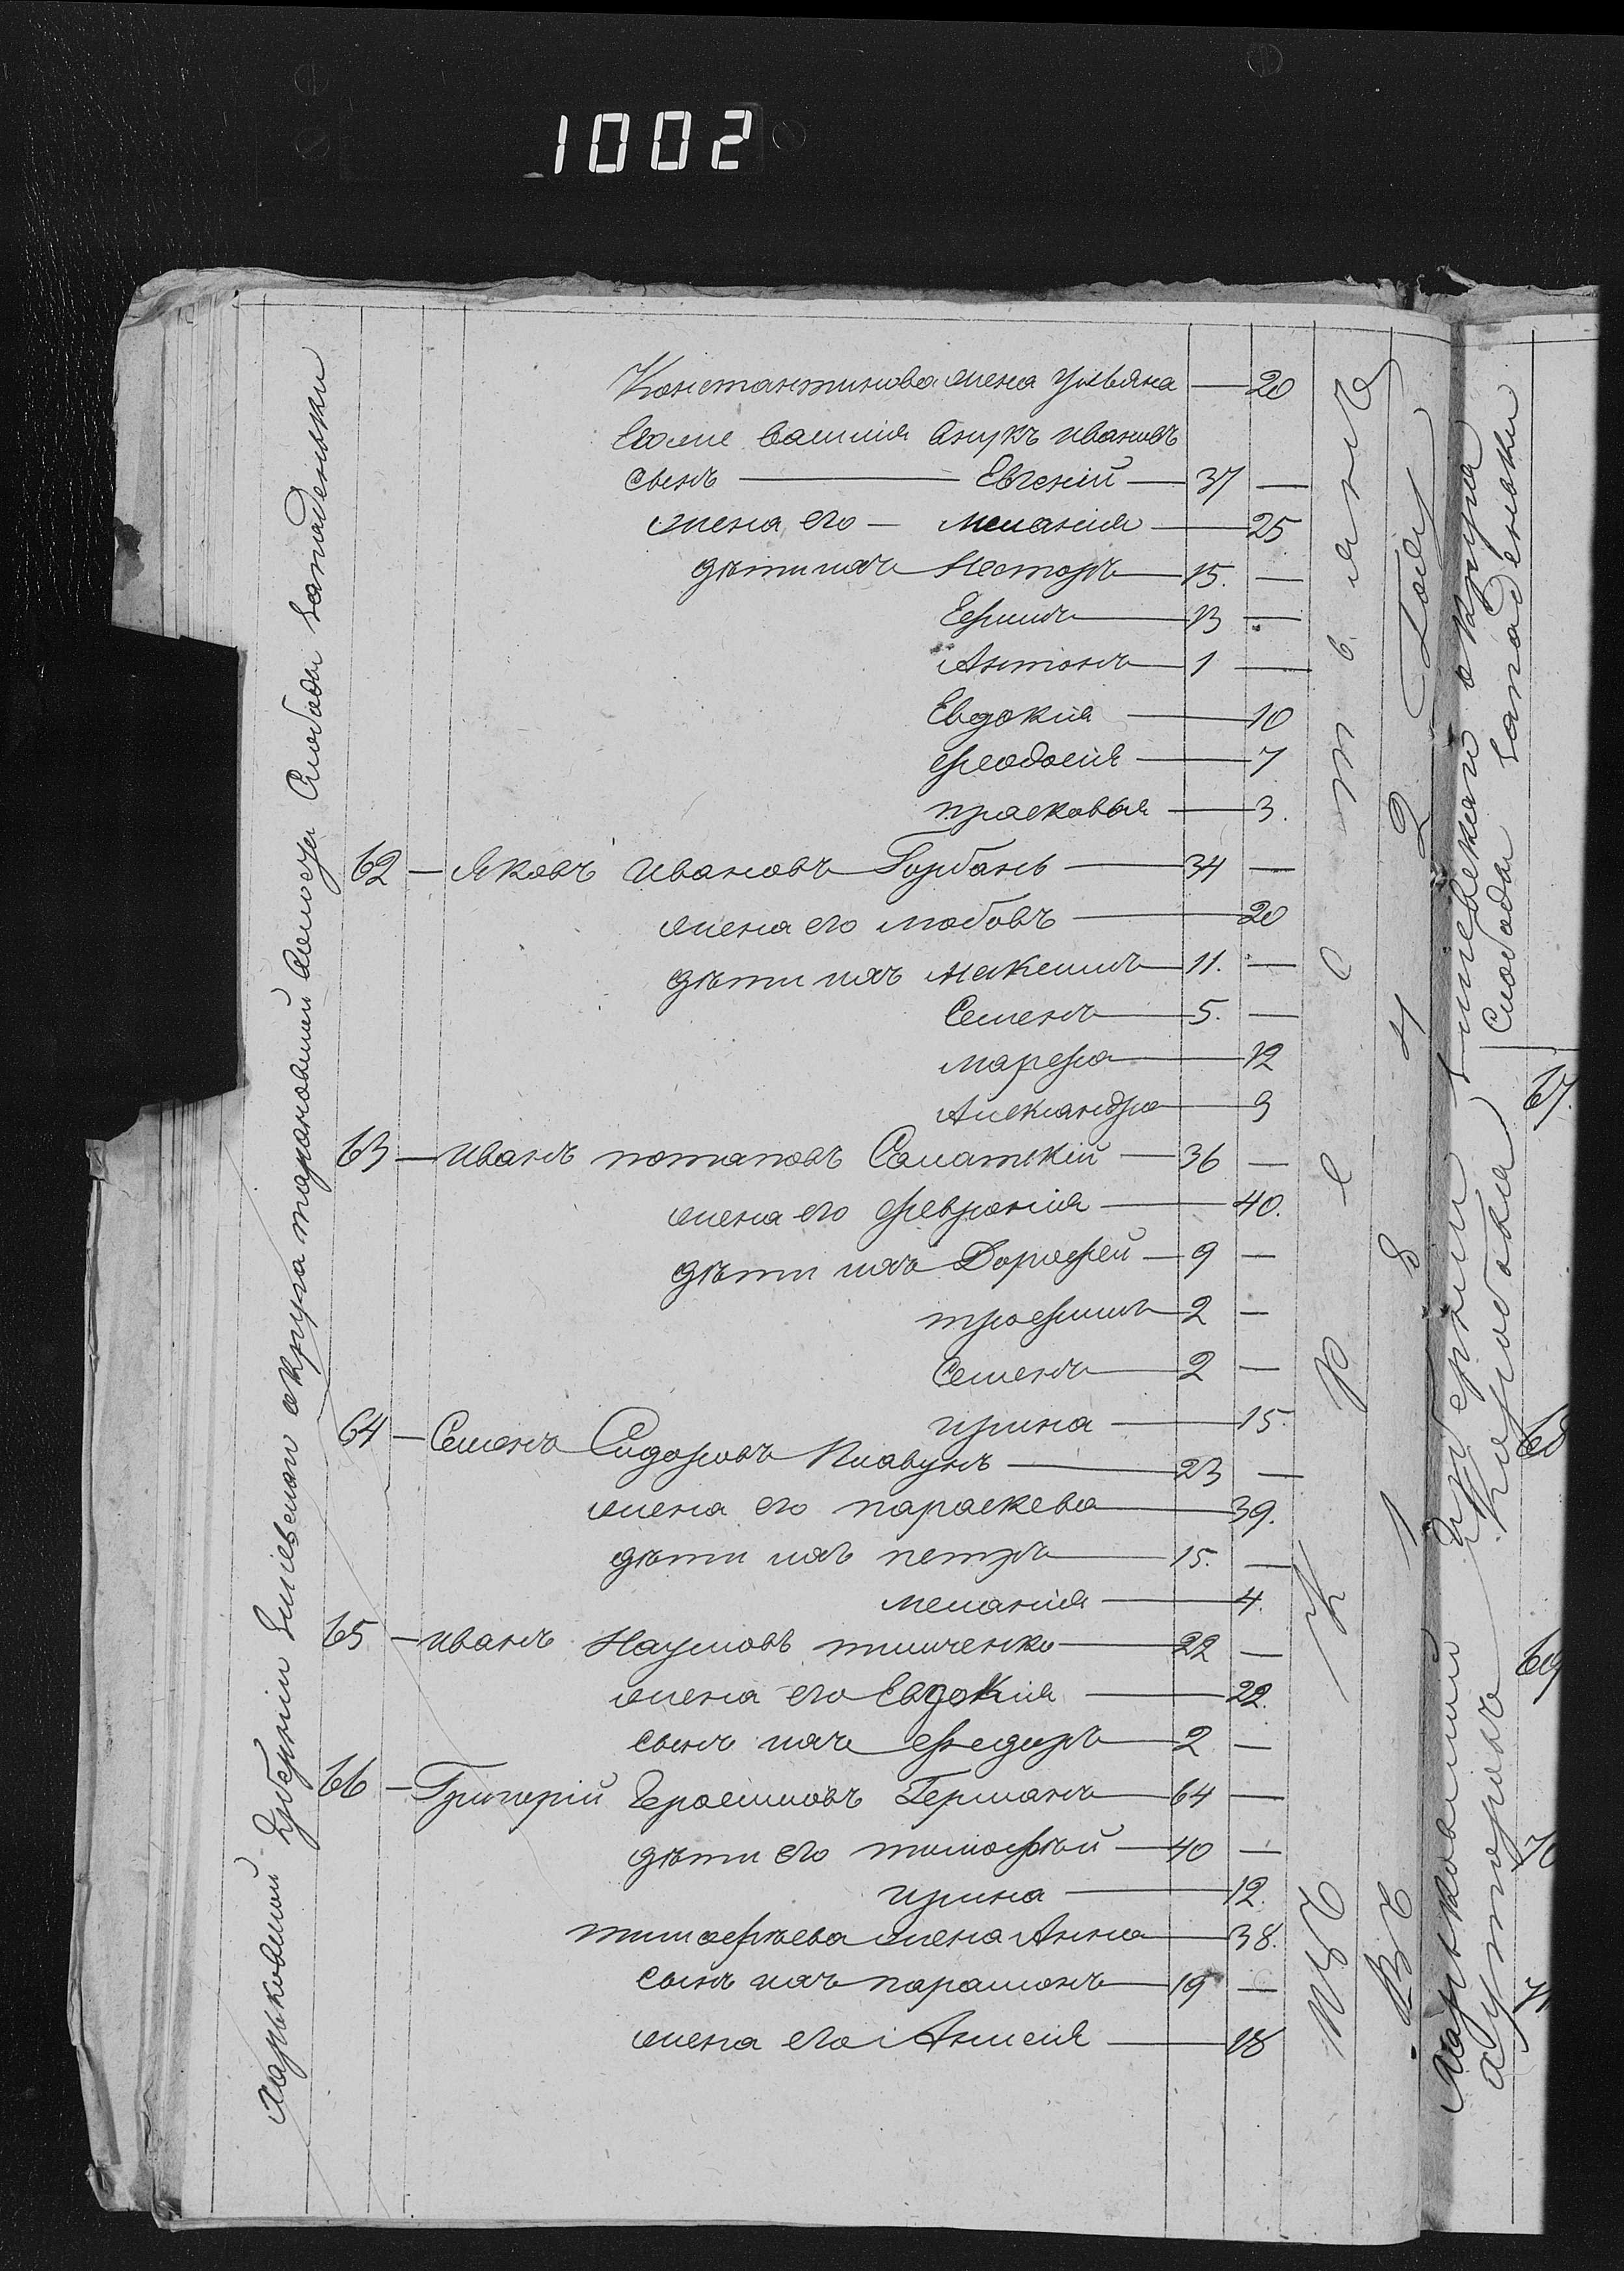 1002
Харьковской Губерніи Зміевскаго округа тарановшой Волости Слобода западенька
Константинова жена Ульяна — 20
Его же василія внукъ ивановъ
сынъ — Евгеній — 37 —
жена его — мелания — 25
дѣти ихъ Несторъ — 15. —
Ефимъ — 13 —
Антонъ — 1 —
Евдокия — 10
феодосия — 7
прасковья — 3.
62 — Яковъ ивановъ Горбань — 34 —
жена его любовъ — 20
дѣти ихъ Максимъ — 11. —
Семенъ — 5. —
марфа — 12
Александра — 3
63 — иванъ потаповъ Саматскій — 36 —
жена его феврония — 40.
дѣти ихъ Дорофей — 9 —
трофимъ — 2 —
Семенъ — 2 —
ирина — 15.
64 — Семенъ Сидоровъ Плавунъ — 23 —
жена его параскева — 39.
дѣти ихъ петръ — 15. —
мелания — 4.
65 — иванъ Наумовъ тимченко — 22 —
жена его Евдокия — 22.
сынъ ихъ федоръ — 2 —
66 — Григорій Герасимовъ Германъ — 64 —
дѣти его тимофѣй — 40 —
ирина — 12.
тимофѣева жена Анна — 38.
сынъ ихъ парамонъ — 19 —
жена его Анисия — 18
Изъ крестьянъ
Въ 1842 Году
Харьковской губерніи Зміевскаго округа
хуторянъ Коробовка Слобода западеньки
67.
68
69
70
71